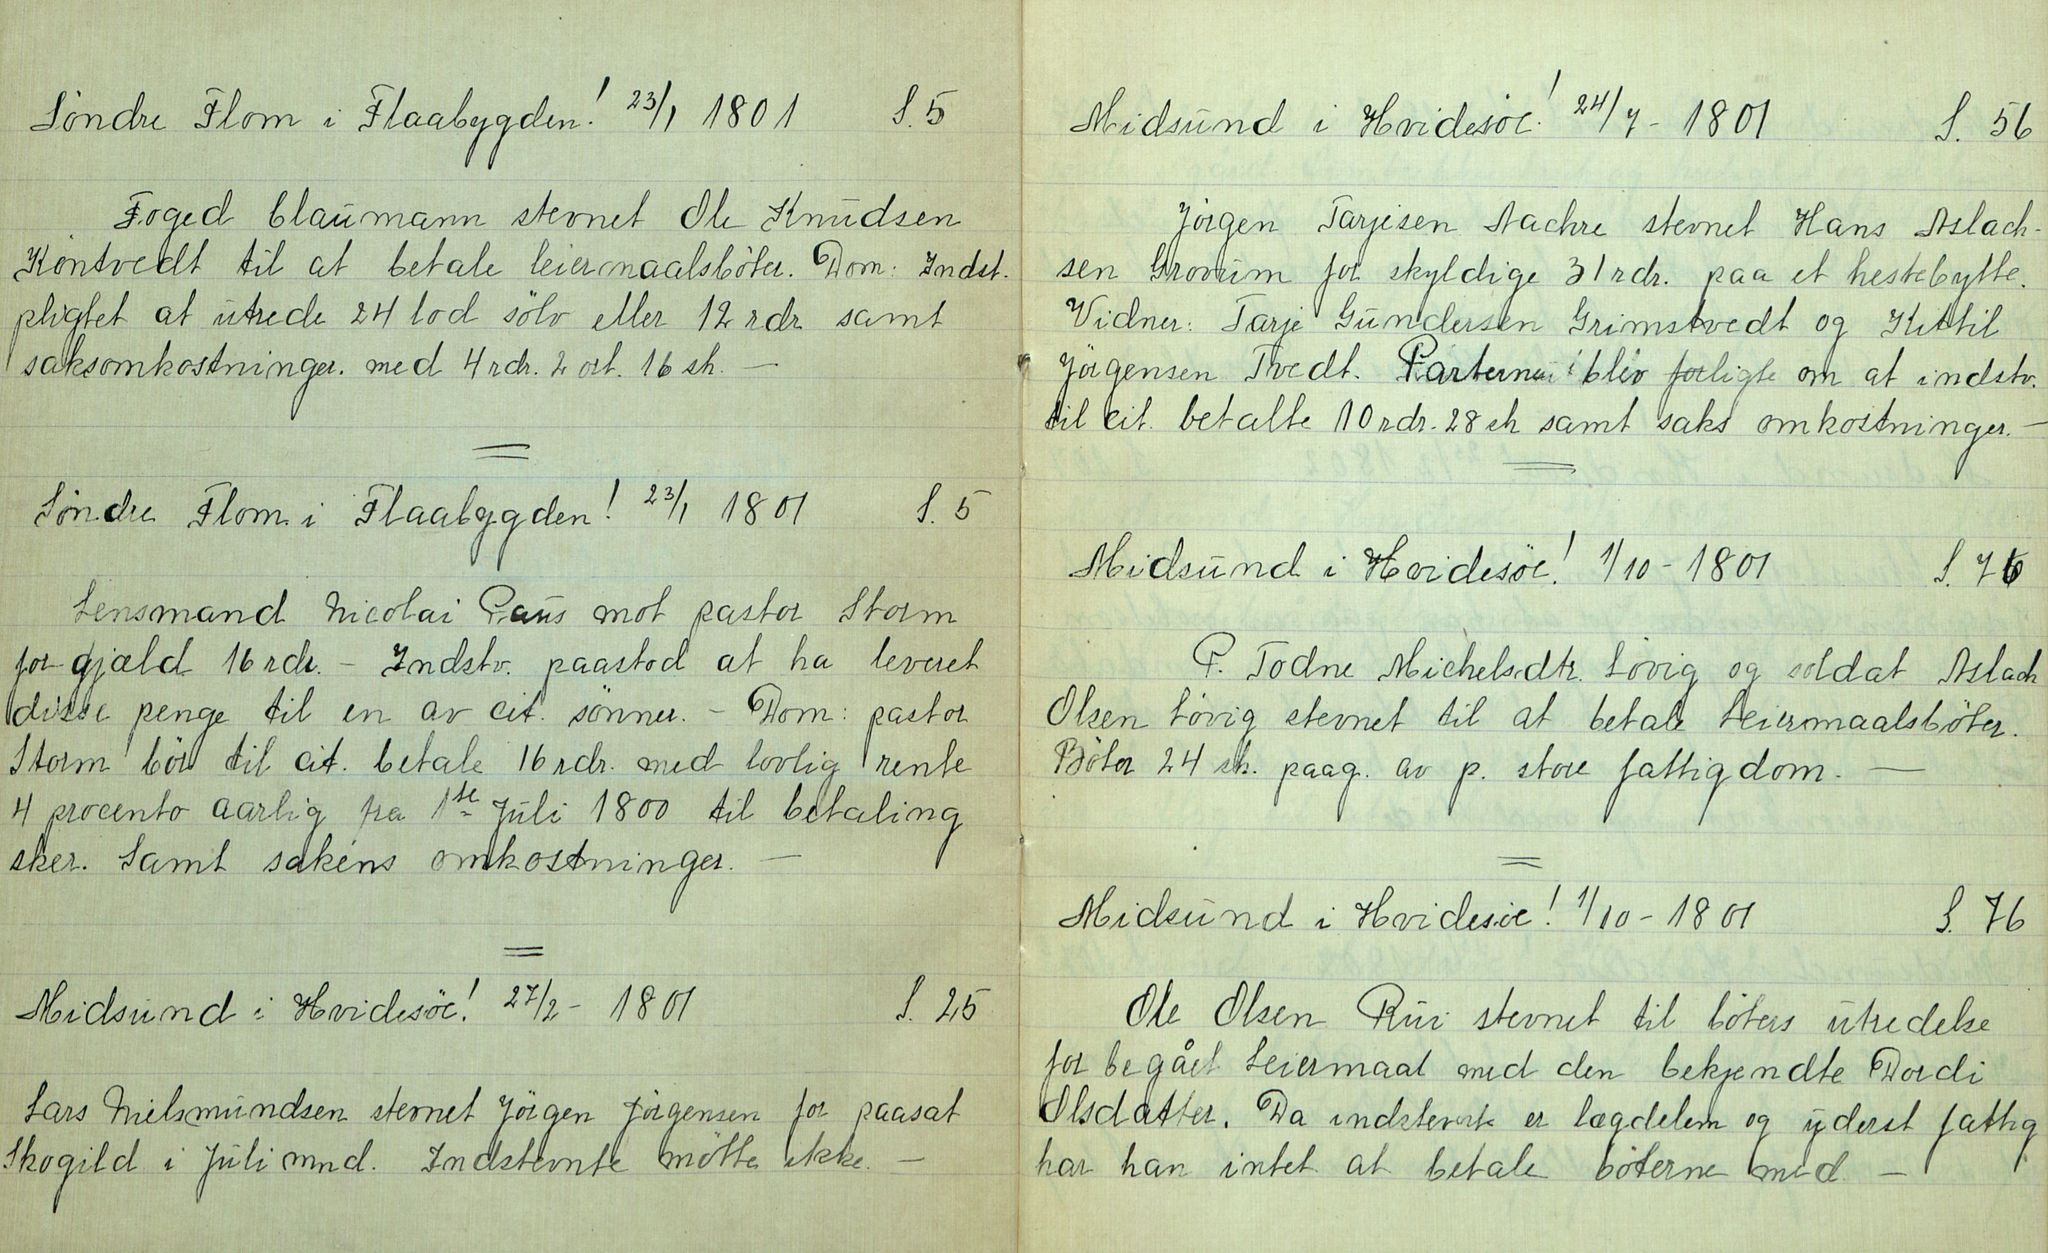 Söndre Flom i Flaabygden! 23/1 1801 S. 5
Foged Claumann stevnet Ole Knudsen
Kontvedt til at betale leiermaalsböter. Dom: Indst.
pligtet at utrede 24 lod sölv eller 12 rdr samt
saksomkostninger. med 4 rdr. 2 ort. 16 sk. —
Söndre Flom i Flaabygden! 23/1 1801 S. 5
Lensmand Nicolai Paus mot pastor Storm
for gjæld 16 rdr. – Indstv. paastod at ha leveret
disse penge til en av cit. sönner. – Dom: pastor
Storm bör til cit. betale 16 rdr. med lovlig rente
4 procento aarlig fra 1ste Juli 1800 til betaling
sker. Samt sakens omkostninger. —
Midsund i Hvidesöe! 27/2 – 1801 S. 25
Lars Nielsmundsen stevnet Jörgen Jörgensen for paasat
Skogild i Juli mnd. Indstevnte mötte ikke. —
Midsund i Hvidesöe! 24/7 – 1801 S. 56
Jörgen Tarjesen Aachre stevnet Hans Aslach-
sen Grovum for skyldige 31 rdr. paa et hestebytte.
Vidner: Tarje Gundersen Grimstvedt og Kittil
Jörgensen Tvedt. Parterne blev forligte om at indstv.
til cit. betalte 10 rdr. 28 sk samt saks omkostninger. —
Midsund i Hvidesöe! 1/10 – 1801 S. 76
P. Todne Michelsdtr. Lövig og soldat Aslach
Olsen Lövig stevnet til at betale Leiermaalsböter.
Böter 24 sk. paag. av p. store fattigdom. —
Midsund i Hvidesöe! 1/10 – 1801 S. 76
Ole Olsen Rui stevnet til böters utredelse
for begået Leiermaal med den bekjendte Dordi
Olsdatter. Da indstevnte er lægdelem og yderst fattig
har han intet at betale böterne med —